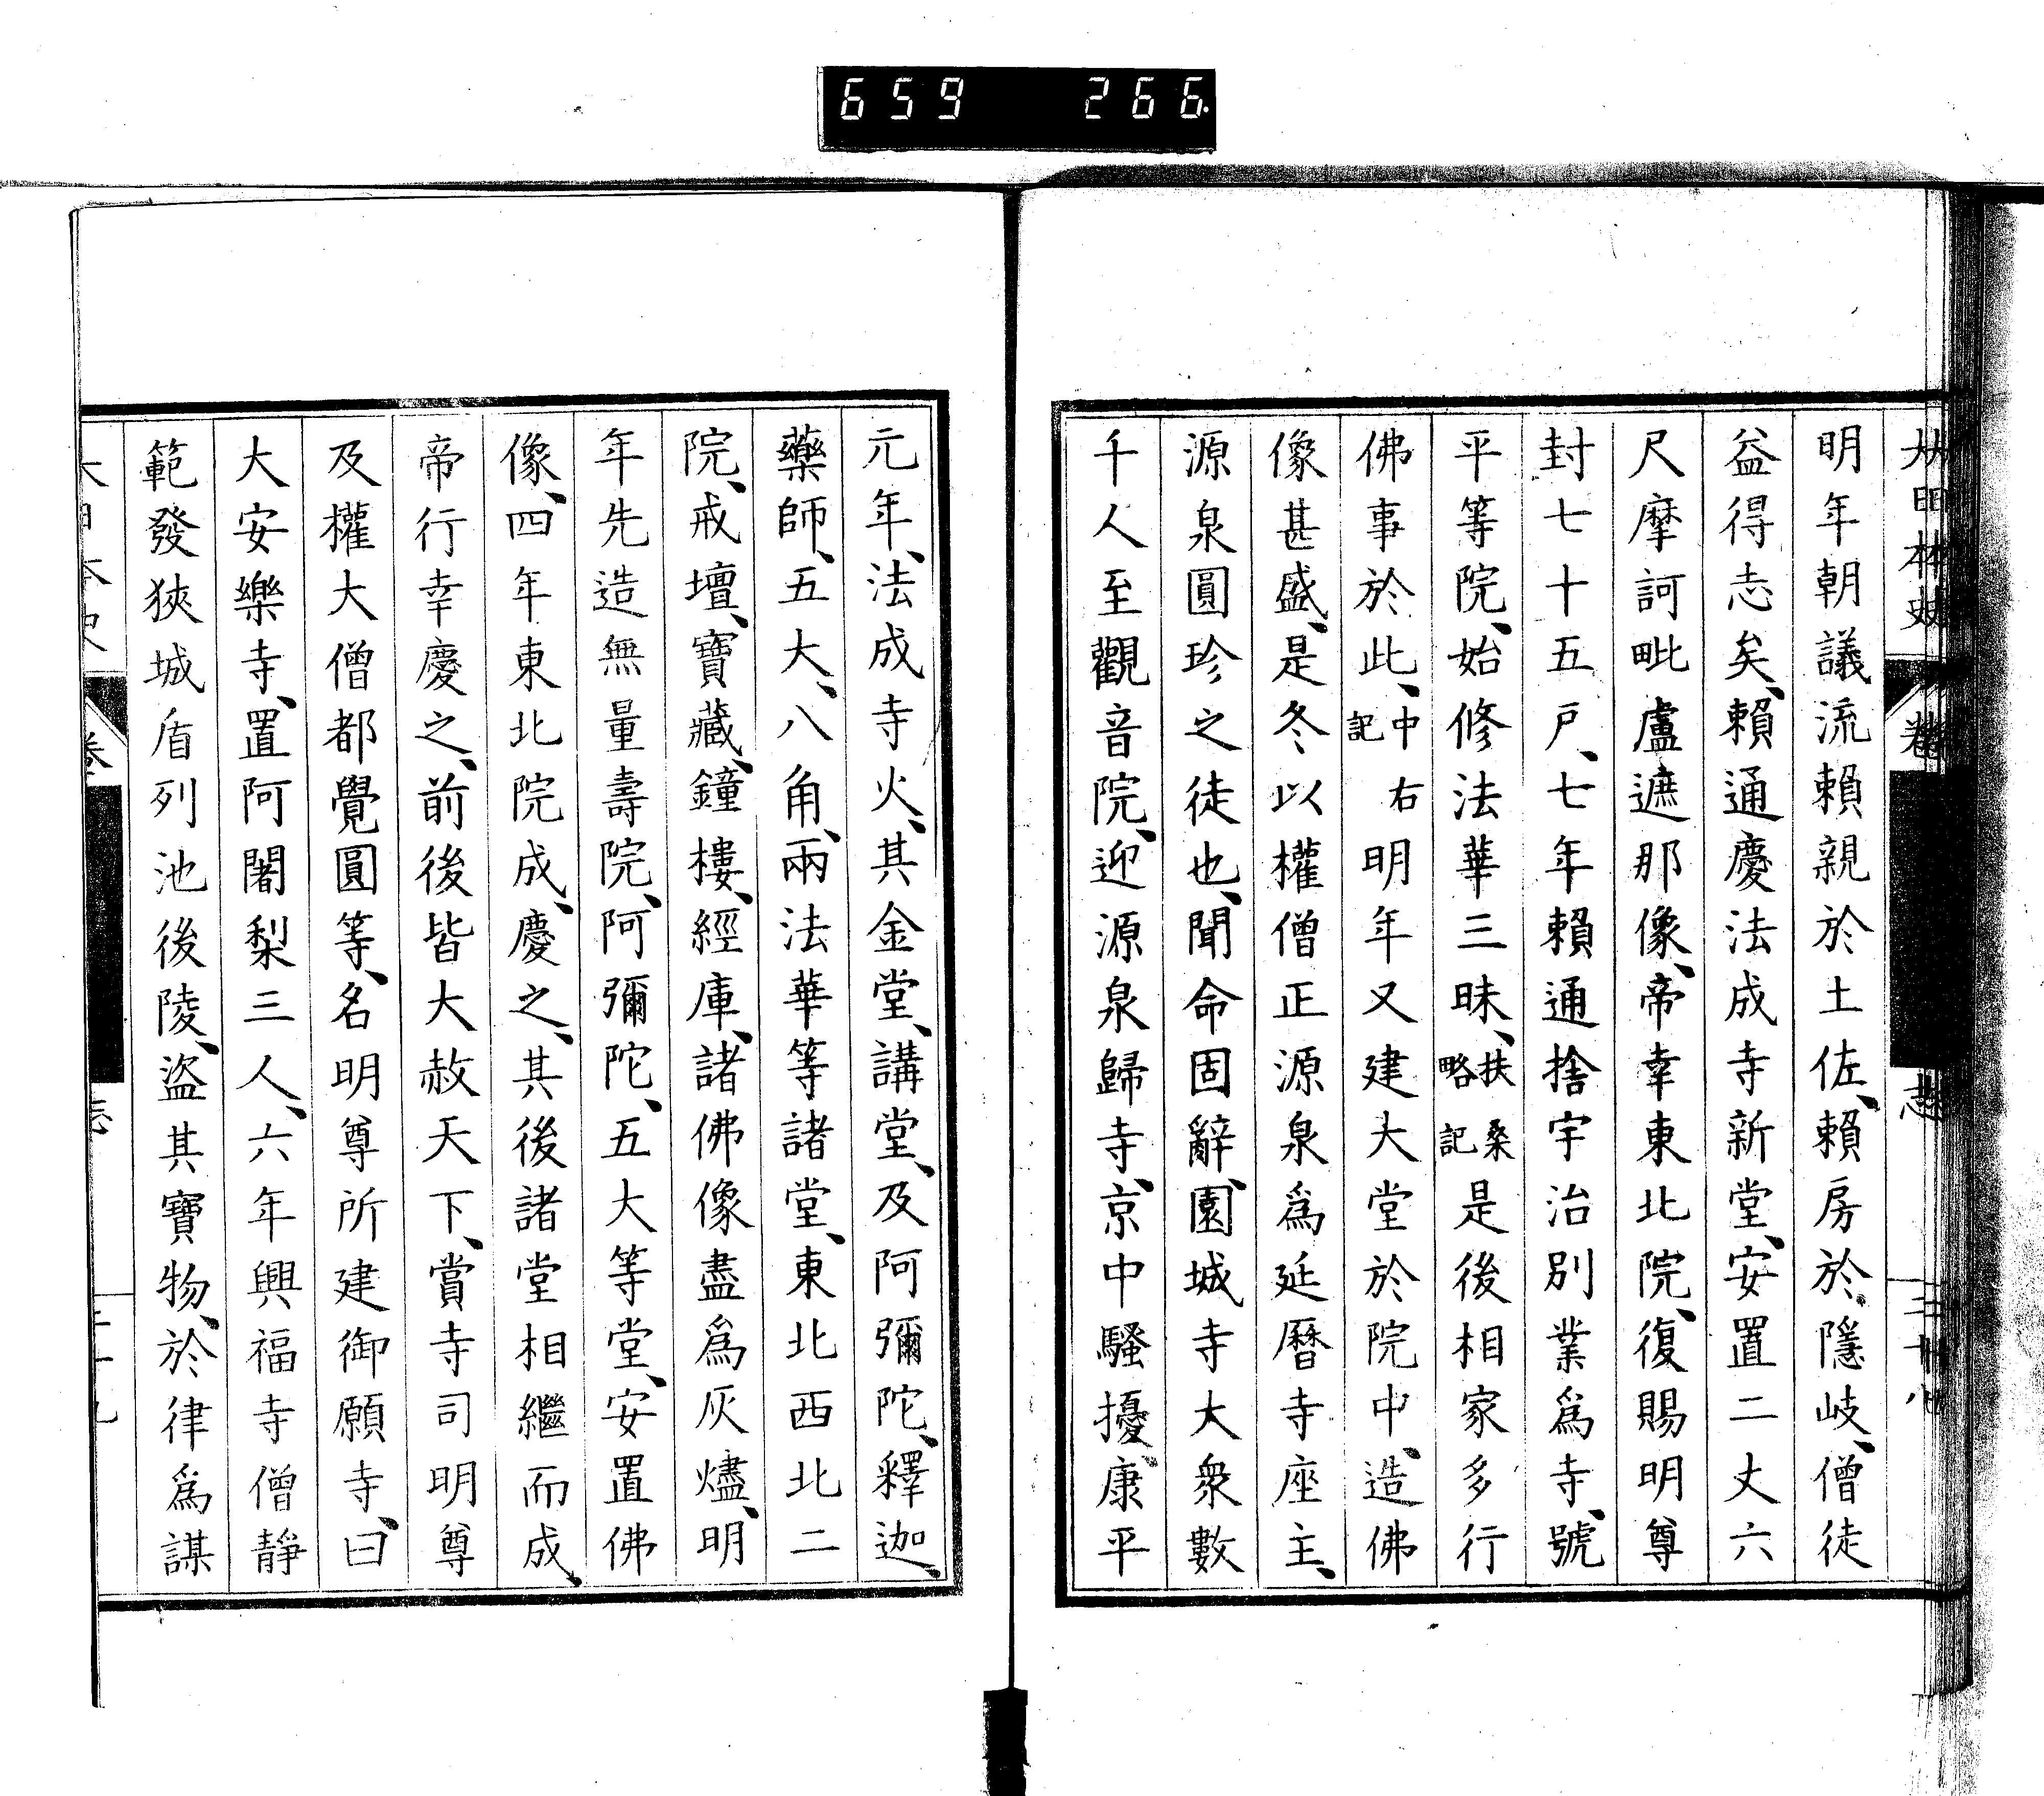 659 266
明年朝議流賴親於土佐、賴房於隱岐、僧徒
益得志矣、賴通慶法成寺新堂、安置二丈六
尺摩訶毗盧遮那像、帝幸東北院、復賜明尊
封七十五戶、七年賴通捨宇治別業爲寺、號
平等院、始修法華三昧、扶桑略記是後相家多行
佛事於此、中右記明年又建大堂於院中、造佛
像甚盛、是冬以權僧正源泉爲延曆寺座主、
源泉圓珍之徒也、聞命固辭、園城寺大衆數
千人至觀音院、迎源泉歸寺、京中騷擾、康平
元年、法成寺火、其金堂、講堂、及阿彌陀、釋迦、
藥師、五大、八角、兩法華等諸堂、東北西北二
院、戒壇、寶藏、鐘樓、經庫、諸佛像盡爲灰燼、明
年先造無量壽院、阿彌陀、五大等堂、安置佛
像、四年東北院成、慶之、其後諸堂相繼而成、
帝行幸慶之、前後皆大赦天下、賞寺司明尊
及權大僧都覺圓等、名明尊所建御願寺、曰
大安樂寺、置阿闍梨三人、六年興福寺僧靜
範發狹城盾列池後陵、盜其寶物、於律爲謀